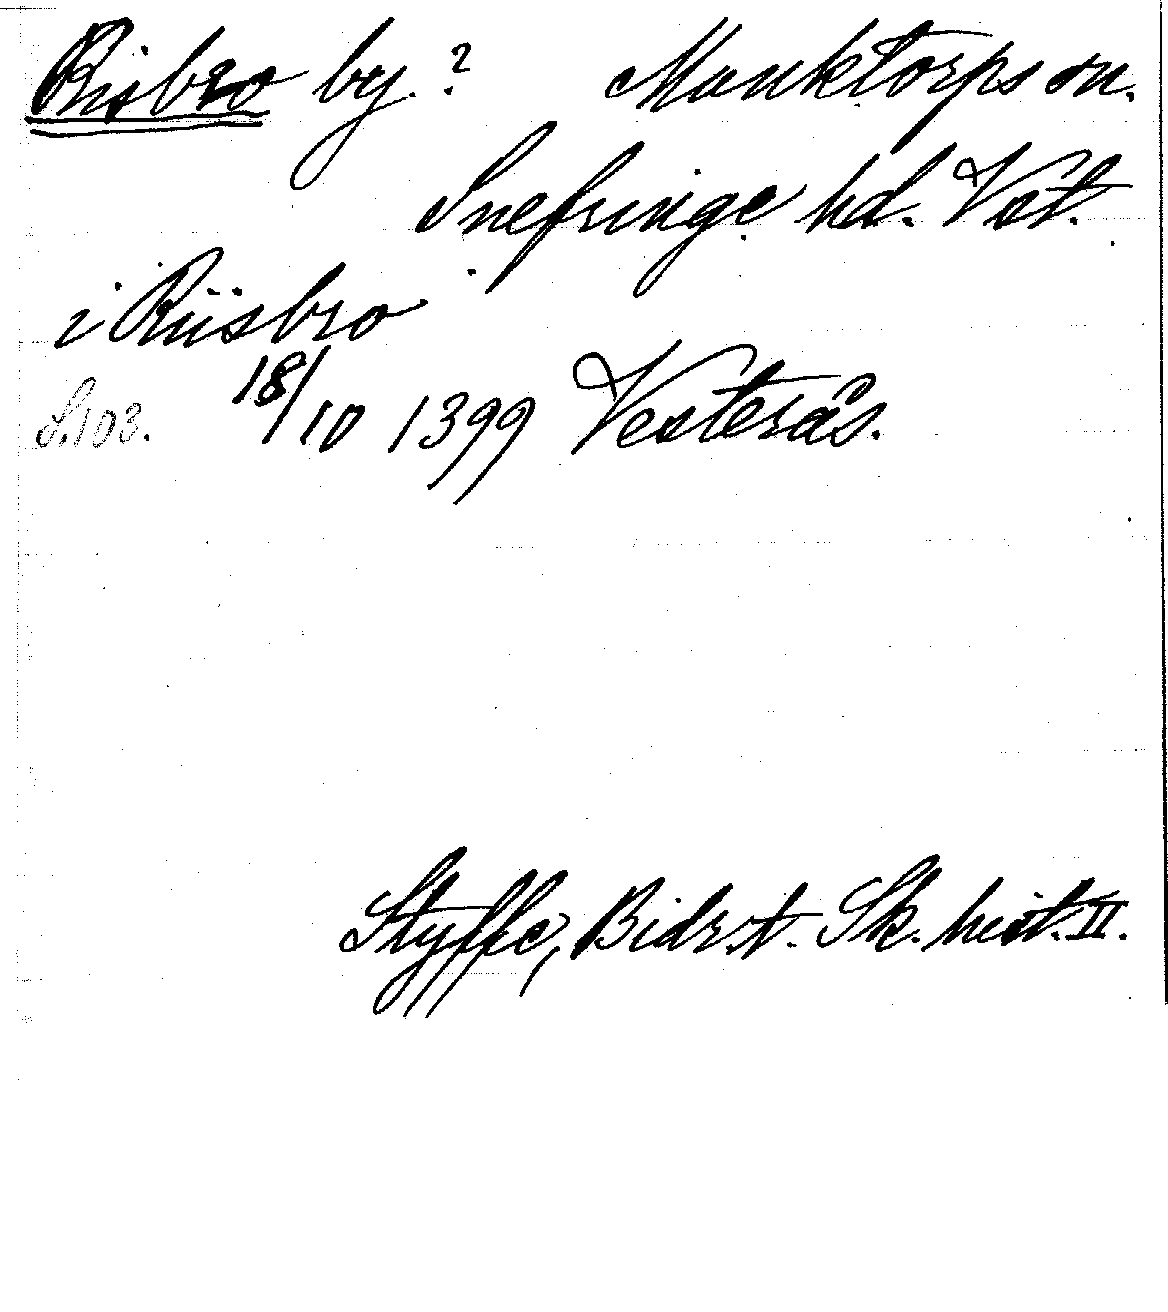 Risbro by.? Munktorps sn.
Snefringe hd. Vst.
i Riisbro
S.103. 18/10 1399 Vesterås.
Styffe, Bidr. t. Sk. hist. II.